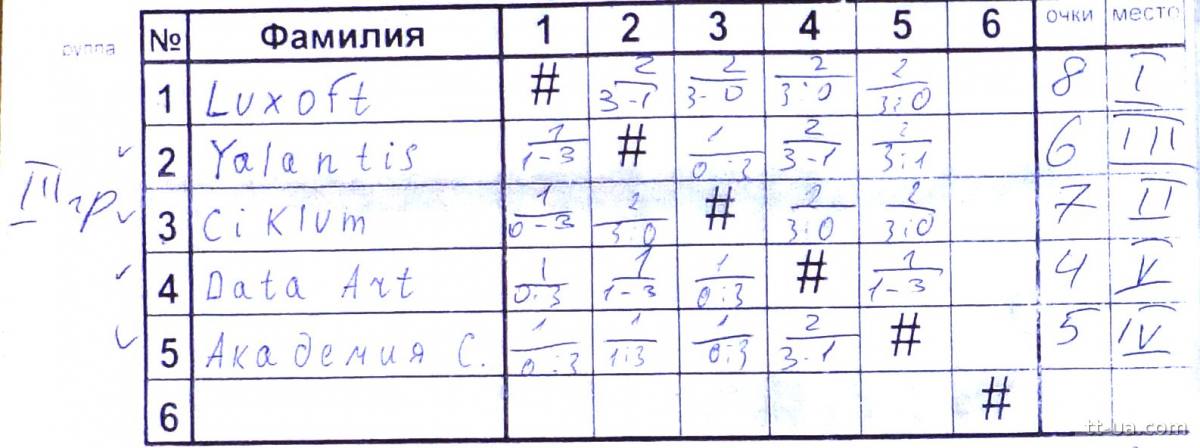 группа № Фамилия 1 2 3 4 5 6 очки место
1 Luxoft # 2 3-1 2 3-0 2 3:0 2 3:0 8 I
2 Yalantis 1 1-3 # 1 0:3 2 3-1 2 3:1 6 III
III гр
3 Ciklum 1 0-3 2 3:0 # 2 3:0 2 3:0 7 II
4 Data Art 1 0:3 1 1-3 1 0:3 # 1 1-3 4 V
5 Академия С. 1 0:3 1 1:3 1 0:3 2 3-1 # 5 IV
6 #
tt-ua.com